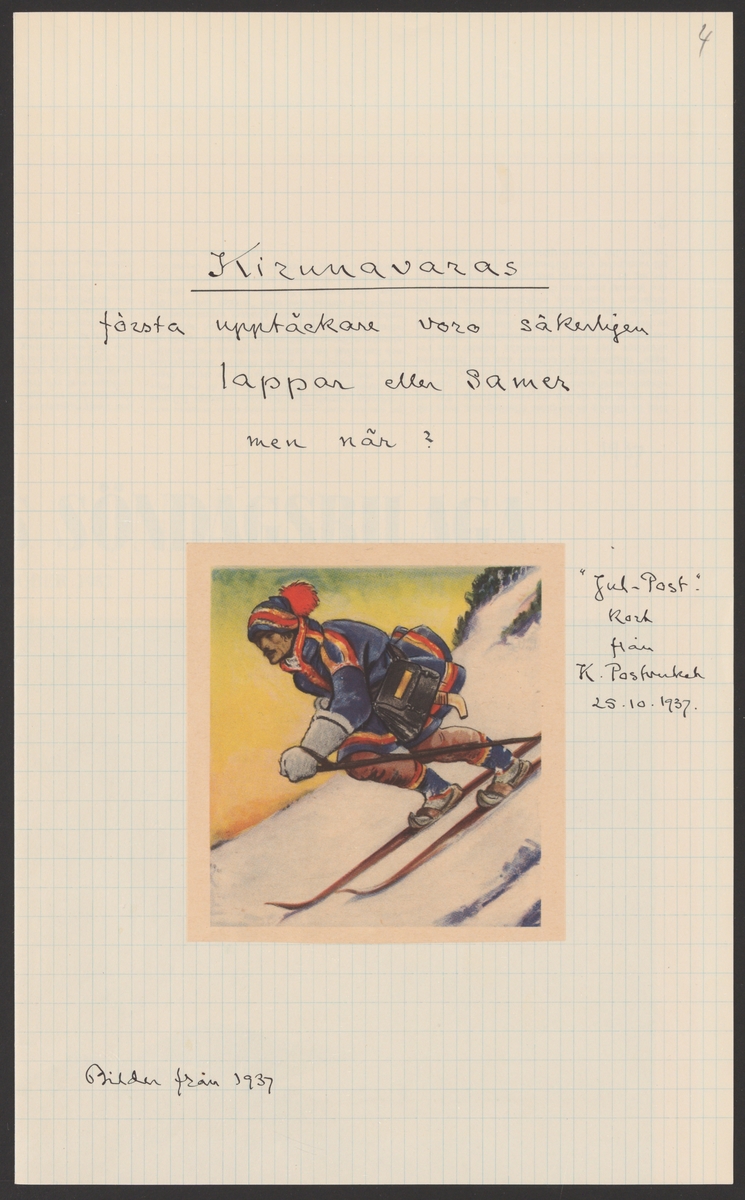 4
Kirunavaras
första upptäckare voro säkerligen
lappar eller Samer
men när ?
"Jul-Post".
kort
från
K. Postverket
25.10.1937.
Bilder från 1937